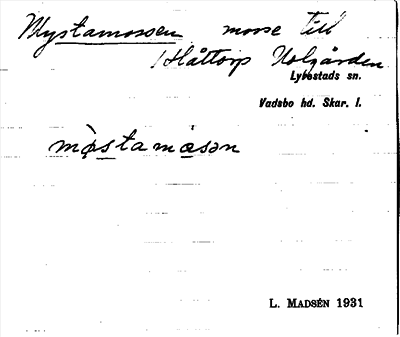 Mystamossen mosse till
Håttorp Nolgården
Lyrestads sn.
Vadsbo hd. Skar. l.
L. MADSÉN 1931